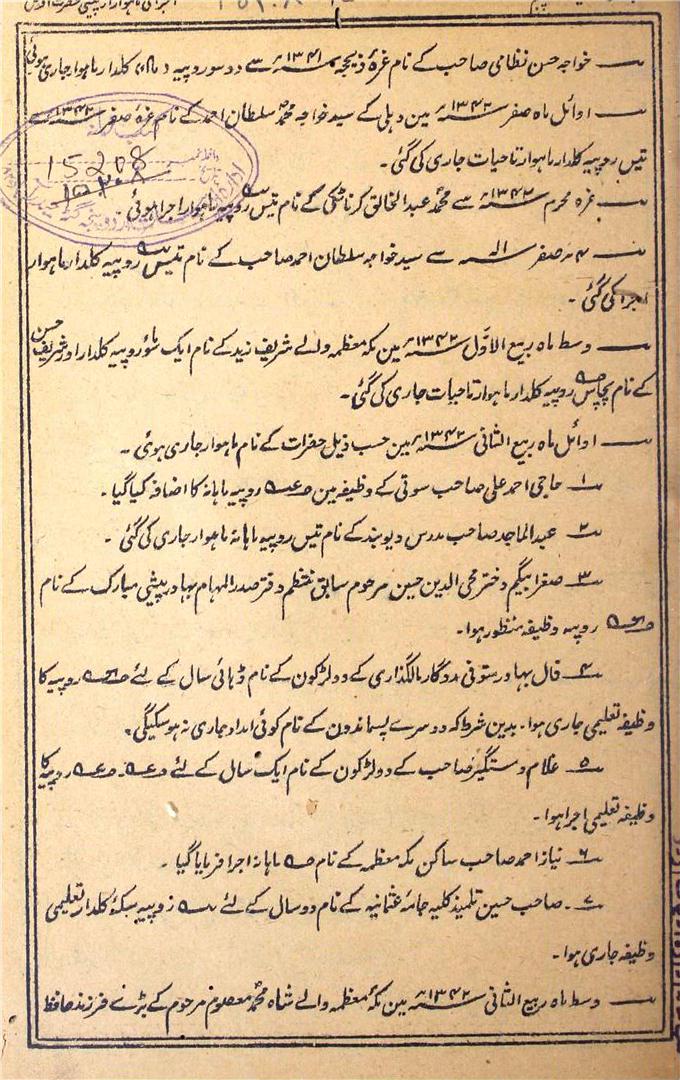 خواجہ حسن نظامی صاحب کے نام غرۂ ذیحجہ ۱۳۴۱ھ سے دو سو روپیہ کلدار ماہوار جاری ہوئی
اوائل ماہ صفر ۱۳۴۲ھ مین دہلی کے سید خواجہ محمد سلطان احمد کے نام غرۂ صفر ۱۳۴۲ھ سے
تیس روپیہ کلدار ماہوار تاحیات جاری کی گئی۔
15208
غرہ محرم ۱۳۴۲ھ سے محمد عبد الخالق کرناٹکی کے نام تیس روپیہ ماہوار اجرا ہوئی۔
۴ صفر الیہ سے سید خواجہ سلطان احمد صاحب کے نام تیس روپیہ کلدار ماہوار
اجرا کی گئی۔
وسط ماہ ربیع الاول ۱۳۴۲ھ مین مکہ معظمہ والے شریف زید کے نام ایک سو روپیہ کلدار اور شریف حسن
کے نام پچاس روپیہ کلدار ماہوار تاحیات جاری کی گئی۔
اوائل ماہ ربیع الثانی ۱۳۴۲ھ مین حسب ذیل حضرات کے نام ماہوار جاری ہوئی۔
۱ حاجی احمد علی صاحب سوتی کے وظیفہ مین روپیہ ماہانہ کا اضافہ کیا گیا۔
۲ عبد الماجد صاحب مدرس دیوبند کے نام تیس روپیہ ماہانہ ماہوار جاری کی گئی۔
۳ صغرا بیگم دختر محی الدین حسین مرحوم سابق منتظم دفتر صدر المہام بہادر پیشی مبارک کے نام
روپیہ وظیفہ منظور ہوا۔
۴ قال بہادر ستوفی مددگار مالگذاری کے دو لڑکون کے نام ڈہائی سال کے لئے روپیہ کا
وظیفہ تعلیمی جاری ہوا۔ بدین شرط کہ دوسرے پسماندون کے نام کوئی امداد جاری نہ ہو سکیگی۔
۵ غلام دستگیر صاحب کے دو لڑکون کے نام ایک سال کے لئے روپیہ کا
وظیفہ تعلیمی اجرا ہوا۔
۶ نیاز احمد صاحب ساکن مکہ معظمہ کے نام ماہانہ اجرا فرمایا گیا۔
۷ صاحب حسین تلمیذ کلیہ جامعہ عثمانیہ کے نام دو سال کے لئے روپیہ سکۂ کلدار تعلیمی
وظیفہ جاری ہوا۔
وسط ماہ ربیع الثانی ۱۳۴۲ھ مین مکہ معظمہ والے شاہ محمد معصوم مرحوم کے بڑے فرزند حافظ